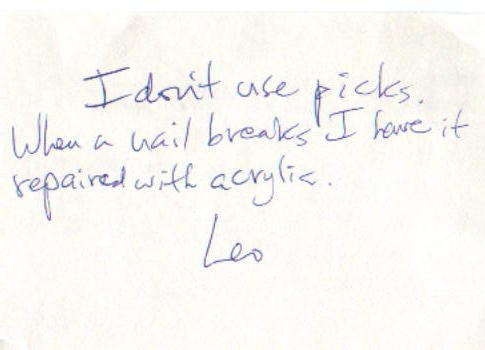 I don't use picks.
When a nail breaks I have it
repaired with acrylic.
Leo